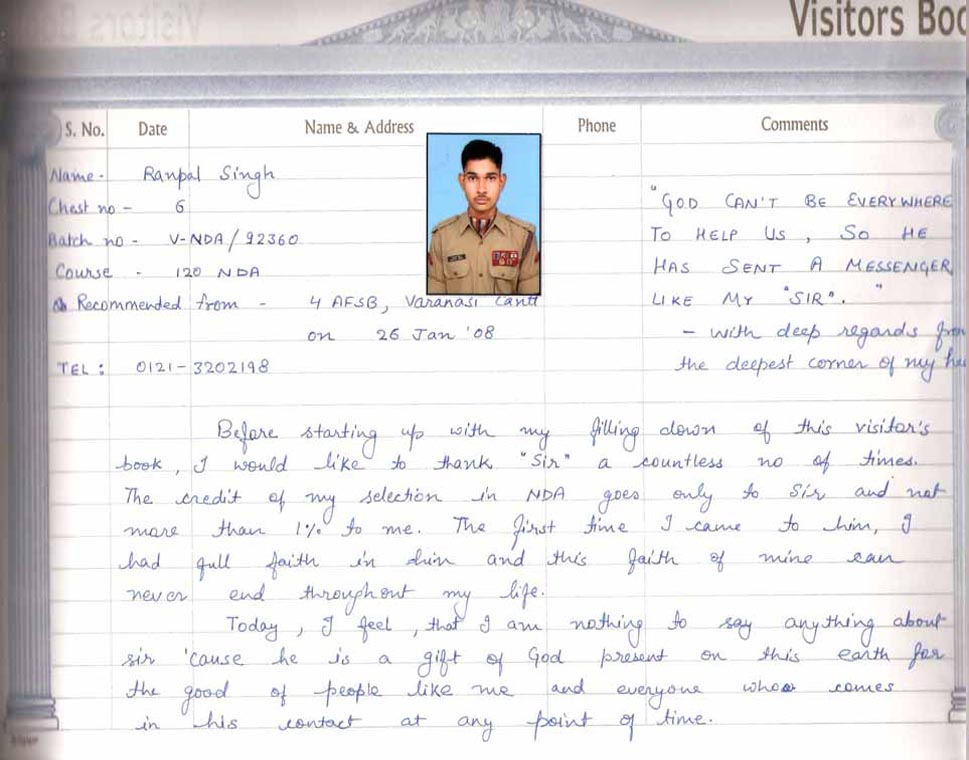 Visitors Boo
S. No. Date Name & Address Phone Comments
Name - Ranpal Singh
Chest no - 6
Batch no - V-NDA/92360
Course - 120 NDA
Recommended from - 4 AFSB, Varanasi Cantt
on 26 Jan '08
TEL : 0121-3202198
"GOD CAN'T BE EVERYWHERE
TO HELP US, SO HE
HAS SENT A MESSENGER
LIKE MY "SIR". "
- with deep regards from
the deepest corner of my hea
Before starting up with my filling down of this visitor's
book, I would like to thank "Sir" a countless no of times.
The credit of my selection in NDA goes only to Sir and not
more than 1% to me. The first time I came to him, I
had full faith in him and this faith of mine can
never end throughout my life.
Today, I feel, that I am nothing to say anything about
sir 'cause he is a gift of God present on this earth for
the good of people like me and everyone who comes
in his contact at any point of time.